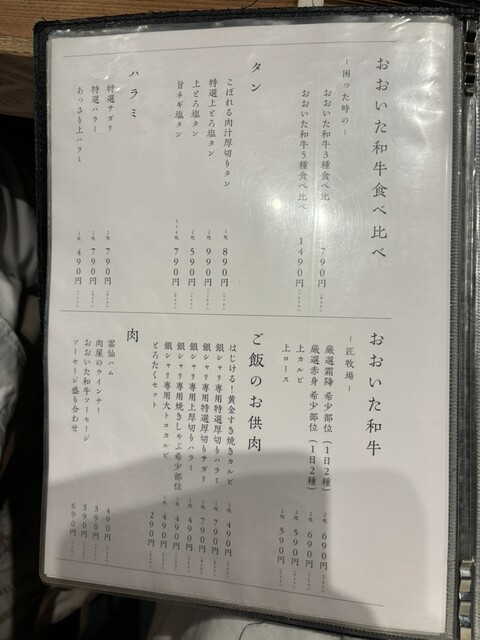 おおいた和牛食べ比べ
~困った時の~
おおいた和牛3種食べ比べ 790円
おおいた和牛5種食べ比べ 1490円
タン
こぼれる肉汁厚切りタン 1枚 890円
特選上とろ塩タン 2枚 990円
上とろ塩タン 2枚 590円
旨ネギ塩タン 790円
ハラミ
特選サガリ 2枚 790円
特選ハラミ 2枚 790円
あっさり上ハラミ 2枚 490円
おおいた和牛
~匠牧場~
厳選霜降 希少部位(1日2種) 2枚 690円
厳選赤身 希少部位(1日2種) 2枚 690円
上カルビ 2枚 590円
上ロース 2枚 590円
ご飯のお供肉
はじける!黄金すき焼きカルビ 1枚 490円
銀シャリ専用特選厚切りハラミ 1枚 790円
銀シャリ専用特選厚切りサガリ 1枚 790円
銀シャリ専用上厚切りハラミ 1枚 490円
銀シャリ専用焼きしゃぶ希少部位 1枚 490円
銀シャリ専用大トロカルビ 1枚 490円
とろたくセット 290円
肉
雲仙ハム 490円
肉屋のウインナー 390円
おおいた和牛ソーセージ 390円
ソーセージ盛り合わせ 690円